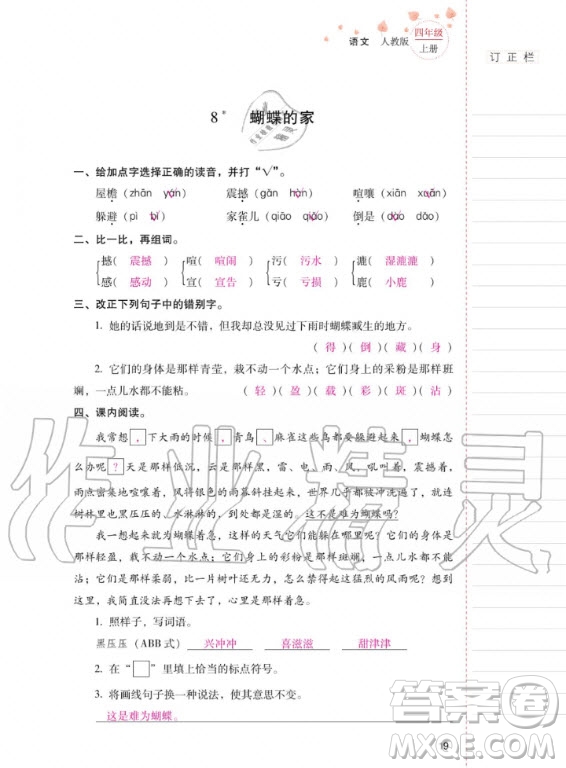 语文 人教版 四年级上册
订正栏
8* 蝴蝶的家
一、给加点字选择正确的读音,并打“√”。
屋檐(zhān yán) 震撼(gǎn hàn) 喧嚷(xiān xuān)
躲避(pì bì) 家雀儿(qiāo qiǎo) 倒是(dào dǎo)
二、比一比,再组词。
撼(震撼) 喧(喧闹) 污(污水) 漉(湿漉漉)
感(感动) 宣(宣告) 亏(亏损) 鹿(小鹿)
三、改正下列句子中的错别字。
1. 她的话说地到是不错,但我却总没见过下雨时蝴蝶臧生的地方。
(得)(倒)(藏)(身)
2. 它们的身体是那样青莹,栽不动一个水点;它们身上的采粉是那样班
斓,一点儿水都不能粘。(轻)(盈)(载)(彩)(斑)(沾)
四、课内阅读。
我常想,下大雨的时候,青鸟、麻雀这些鸟都要躲避起来,蝴蝶怎
么办呢?天是那样低沉,云是那样黑,雷、电、雨、风,吼叫着,震撼着,
雨点密集地喧嚷着,风将银色的雨幕斜挂起来,世界几乎都被冲洗遍了,就连
树林里也黑压压的、水淋淋的,到处都是湿的。这不是难为蝴蝶吗?
我一想起来就为蝴蝶着急,这样的天气它们能躲在哪里呢?它们的身体是
那样轻盈,载不动一个水点;它们身上的彩粉是那样斑斓,一点儿水都不能
沾;它们是那样柔弱,比一片树叶还无力,怎么禁得起这猛烈的风雨呢?想到
这里,我简直没法再想下去了,心里是那样着急。
1. 照样子,写词语。
黑压压(ABB 式) 兴冲冲 喜滋滋 甜津津
2. 在“□”里填上恰当的标点符号。
3. 将画线句子换一种说法,使其意思不变。
这是难为蝴蝶。
19
作业精灵
答案圈
MXQE.COM